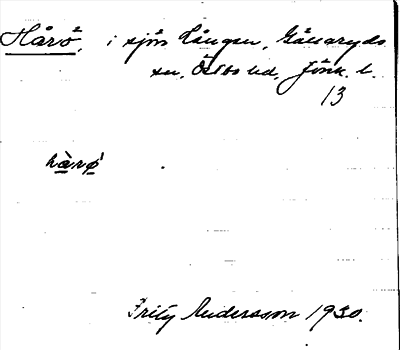 Hårö, i sjön Lången, Gällaryds
sn, Östbo hd, Jönk. l.
13
hàrǿ
Fritz Andersson 1930.